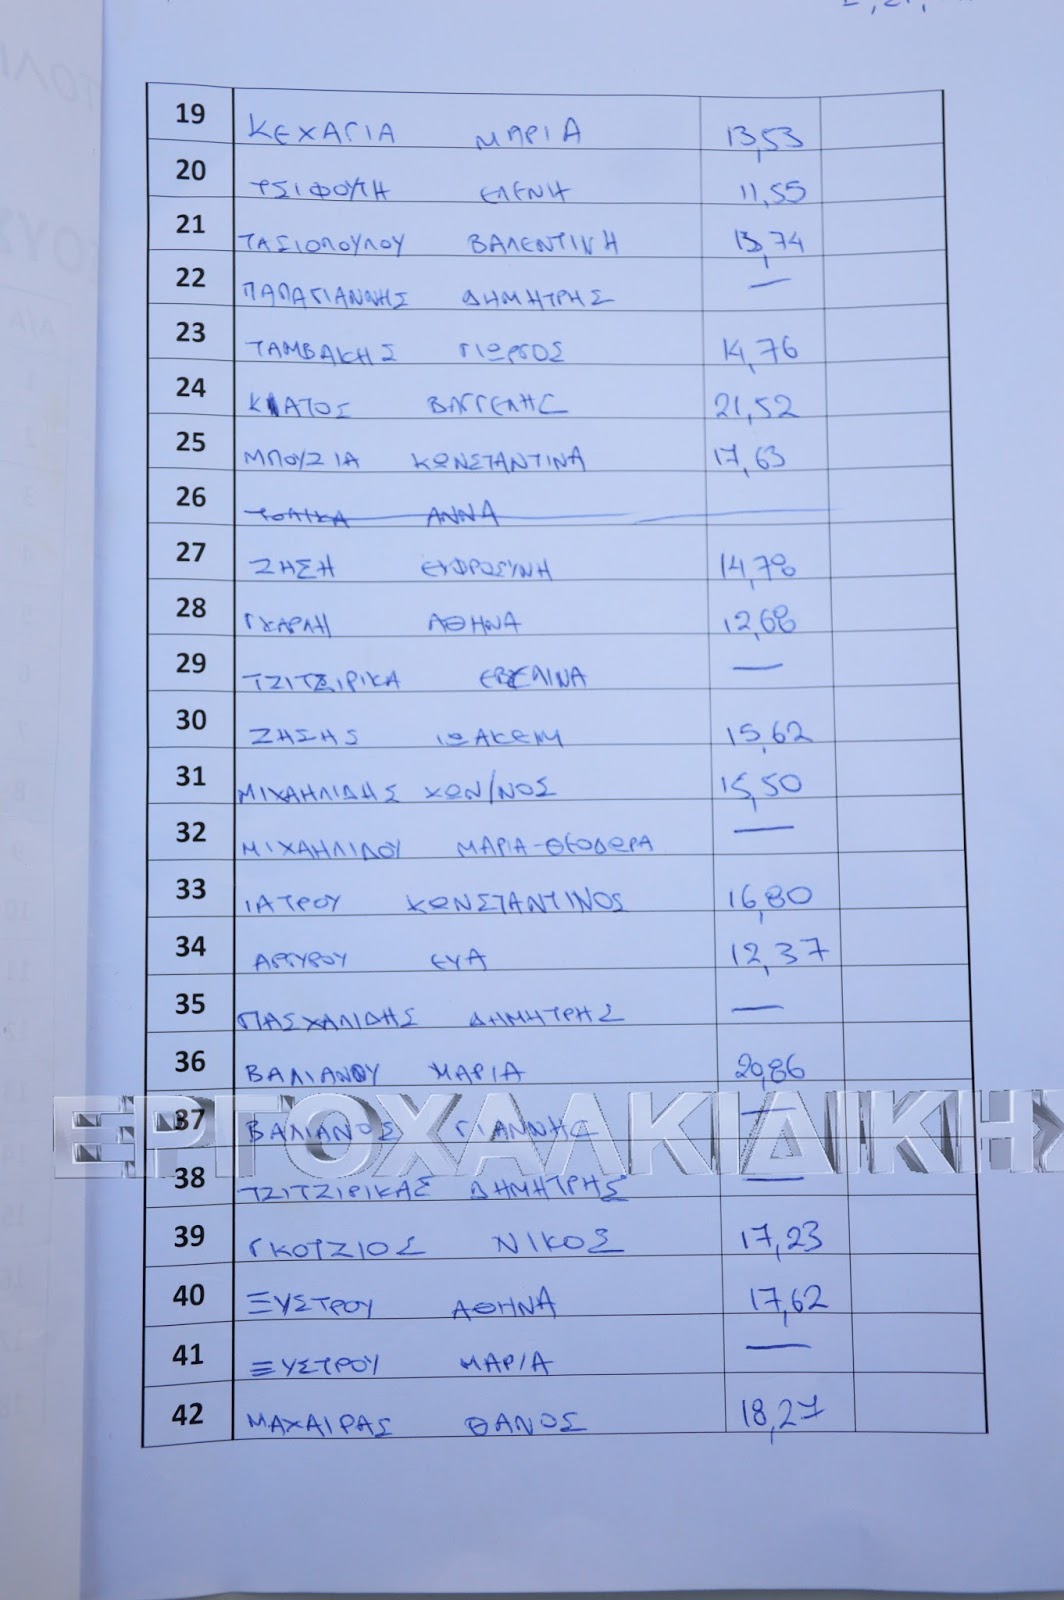 19 ΚΕΧΑΓΙΑ ΜΑΡΙΑ 13,53
20 ΤΣΙΦΟΥΤΗ ΕΛΕΝΗ 11,55
21 ΤΑΣΙΟΠΟΥΛΟΥ ΒΑΛΕΝΤΙΝΗ 13,74
22 ΠΑΠΑΓΙΑΝΝΗΣ ΔΗΜΗΤΡΗΣ —
23 ΤΑΜΒΑΚΗΣ ΓΙΩΡΓΟΣ 14,76
24 ΒΑΓΓΕΛΗΣ 21,52
25 ΜΠΟΥΖΙΑ ΚΩΝΣΤΑΝΤΙΝΑ 17,63
26 ΑΝΝΑ
27 ΖΗΣΗ ΕΥΦΡΟΣΥΝΗ 14,78
28 ΑΘΗΝΑ 12,68
29 ΤΖΙΤΖΙΡΙΚΑ ΕΒΕΛΙΝΑ —
30 ΖΗΣΗΣ ΙΩΑΚΕΙΜ 15,62
31 ΜΙΧΑΗΛΙΔΗΣ ΚΩΝ/ΝΟΣ 15,50
32 ΜΙΧΑΗΛΙΔΟΥ ΜΑΡΙΑ-ΘΕΟΔΩΡΑ —
33 ΙΑΤΡΟΥ ΚΩΝΣΤΑΝΤΙΝΟΣ 16,80
34 ΑΡΓΥΡΟΥ ΕΥΑ 12,37
35 ΠΑΣΧΑΛΙΔΗΣ ΔΗΜΗΤΡΗΣ —
36 ΒΑΛΙΑΝΟΥ ΜΑΡΙΑ 20,86
ΕΡΓΟΧΑΛΚΙΔΙΚΗΣ
37 ΒΑΛΙΑΝΟΣ ΓΙΑΝΝΗΣ —
38 ΤΖΙΤΖΙΡΙΚΑΣ ΔΗΜΗΤΡΗΣ —
39 ΓΚΟΤΖΙΟΣ ΝΙΚΟΣ 17,23
40 ΞΥΣΤΡΟΥ ΑΘΗΝΑ 17,62
41 ΞΥΣΤΡΟΥ ΜΑΡΙΑ —
42 ΜΑΧΑΙΡΑΣ ΘΑΝΟΣ 18,27